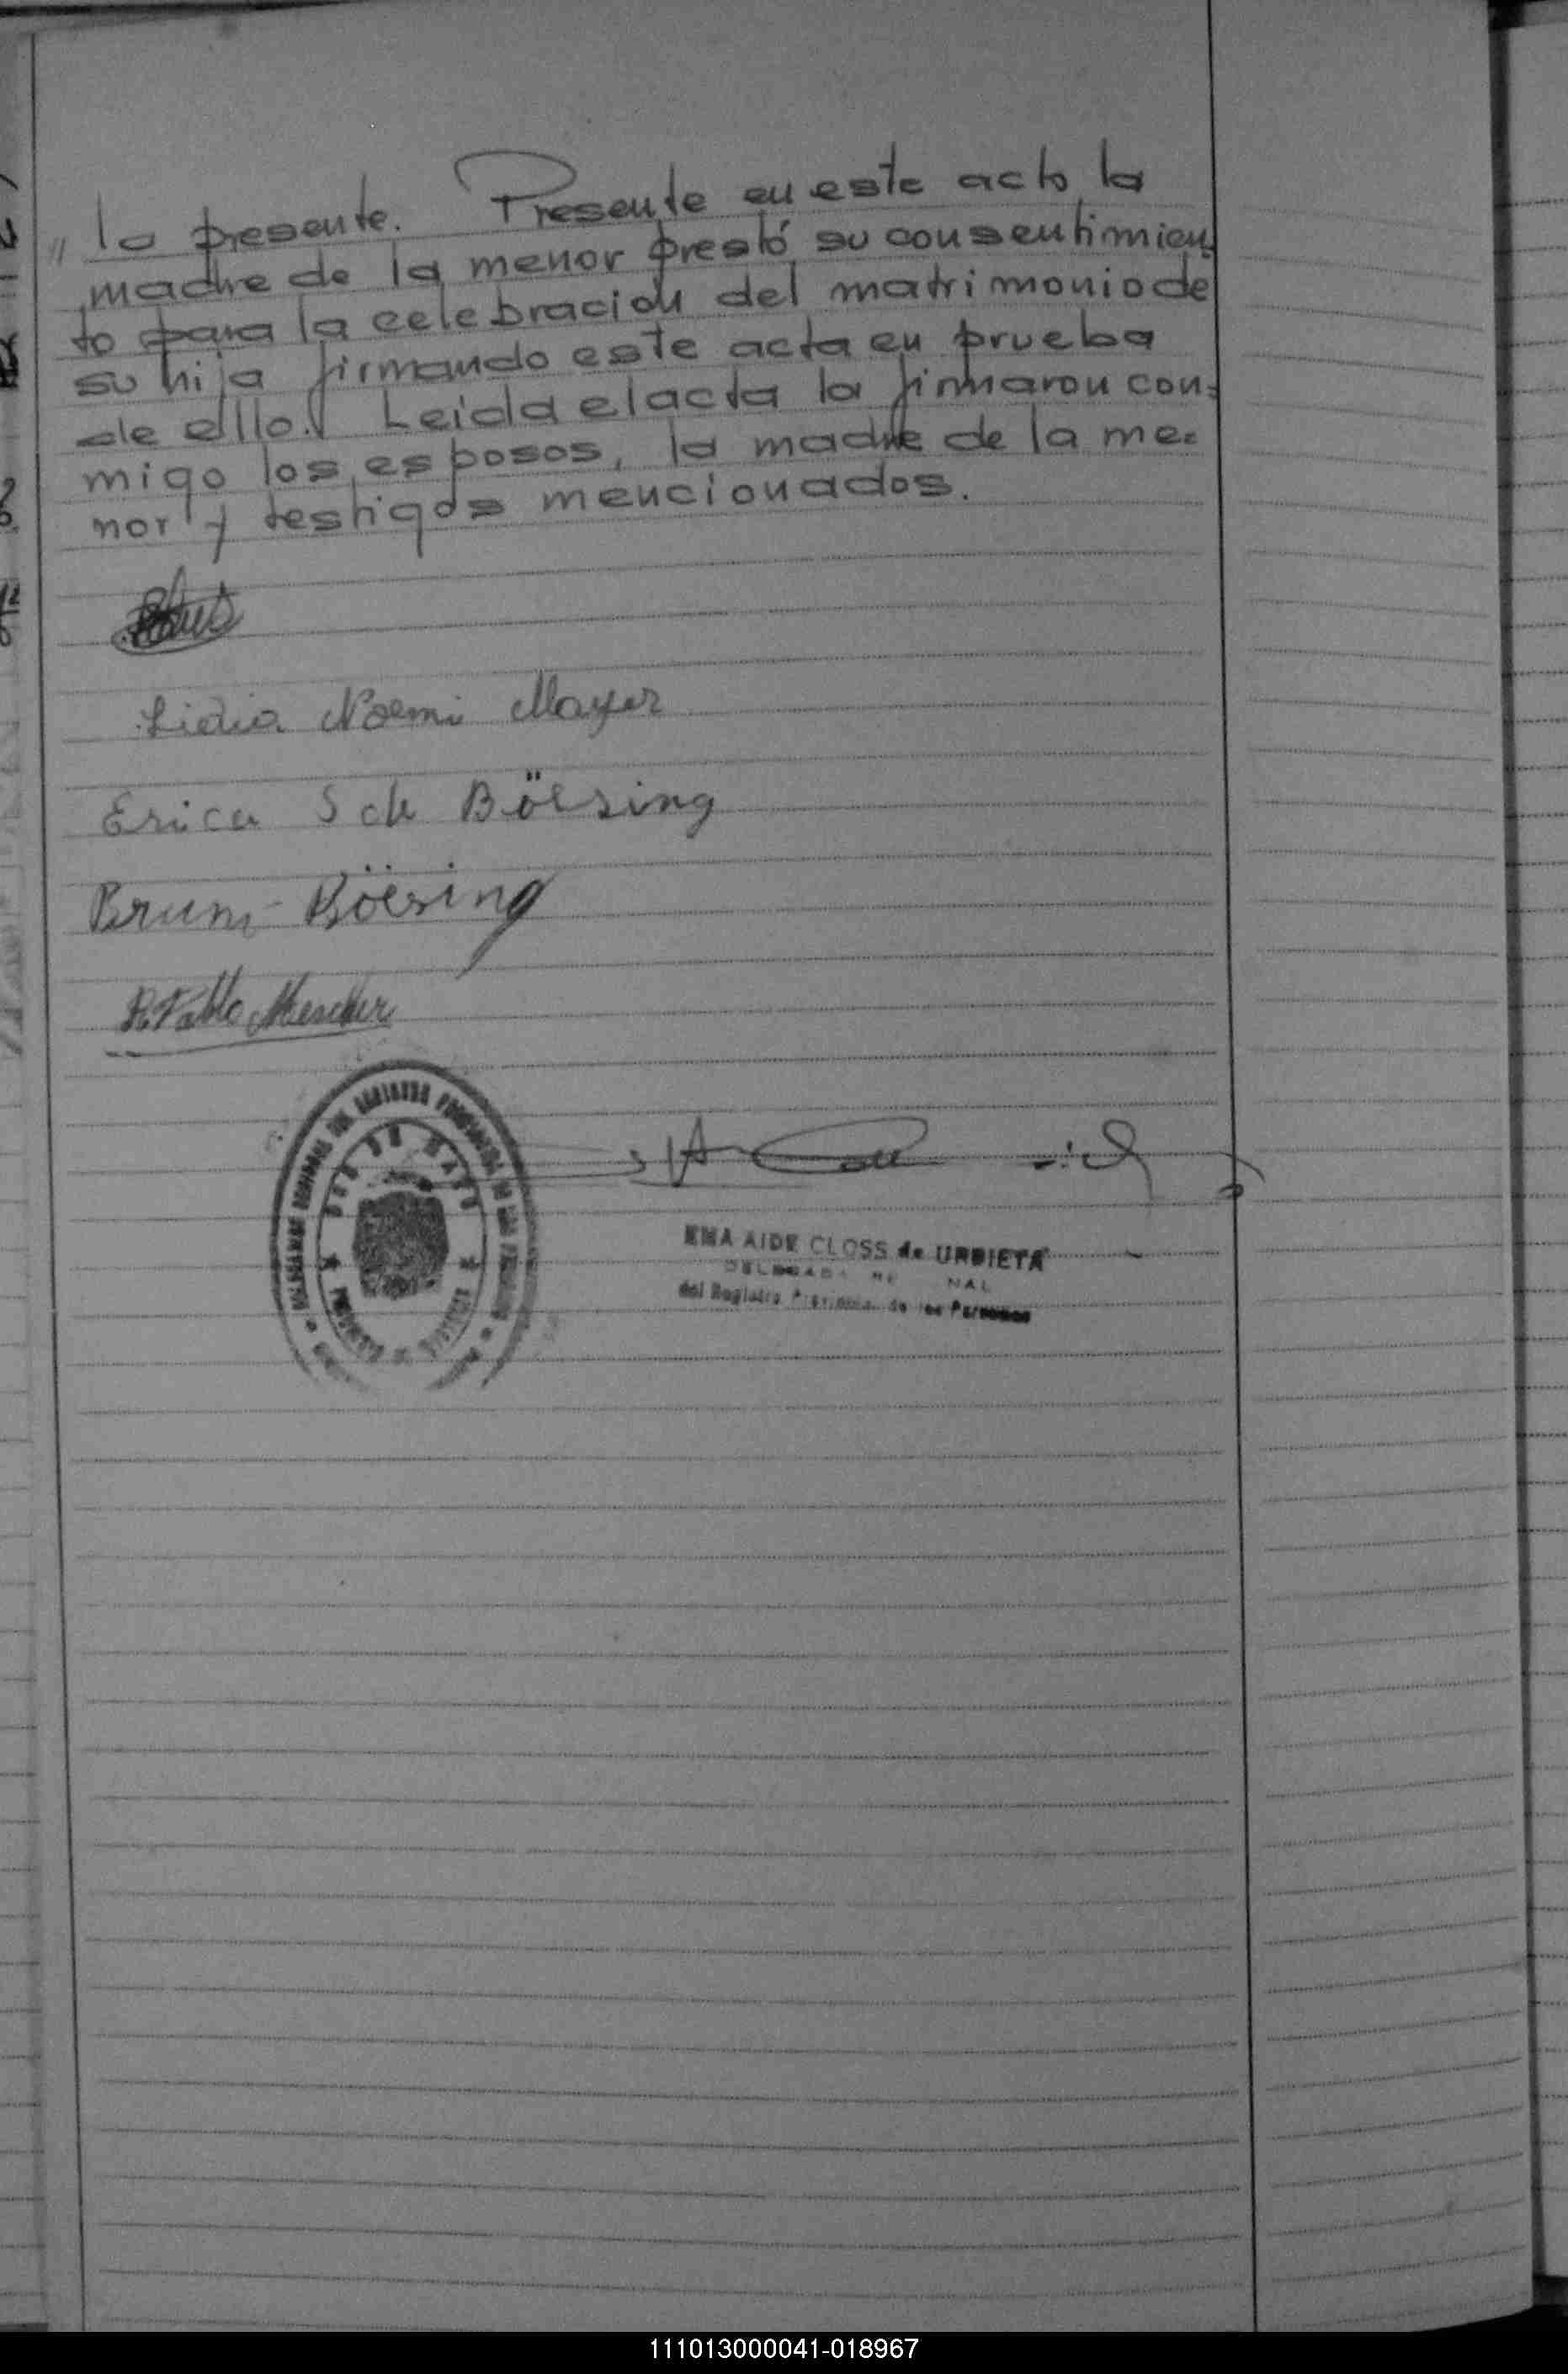 " la presente. Presente en este acto la
madre de la menor prestó su consentimien
to para la celebración del matrimonio de
su hija firmando este acta en prueba
de ello. Leida el acta la firmaron con=
migo los esposos, la madre de la me=
nor y testigos mencionados.
Lidia Noemi Mayer
Erica S de Böesing
Bruno Böesing
R. Pablo
DOS DE MAYO
EMA AIDE CLOSS de URBIETA
del Registro Provincial de las Personas
111013000041-018967